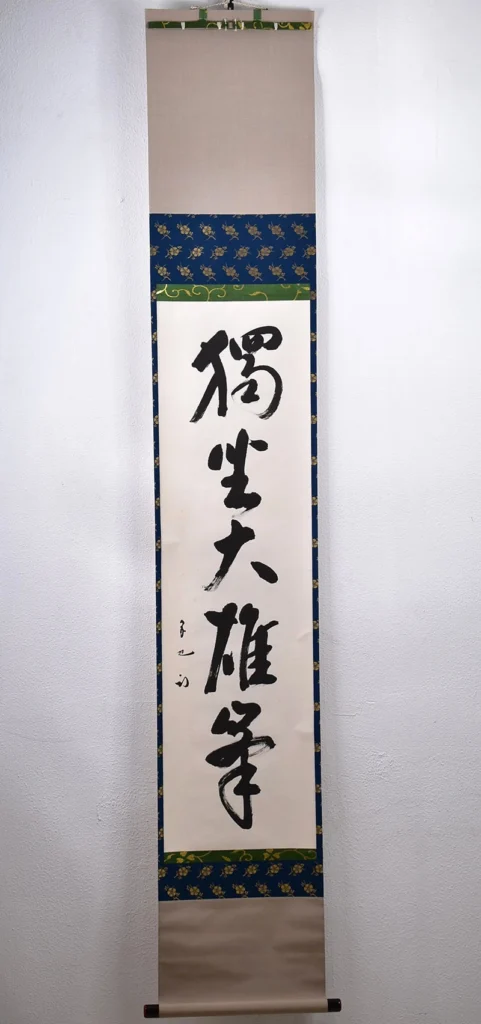 獨坐大雄峯